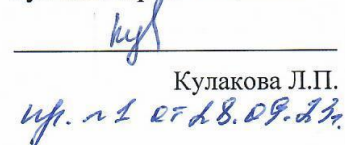 Кулакова Л.П.
пр. №1 от 28.09.23г.